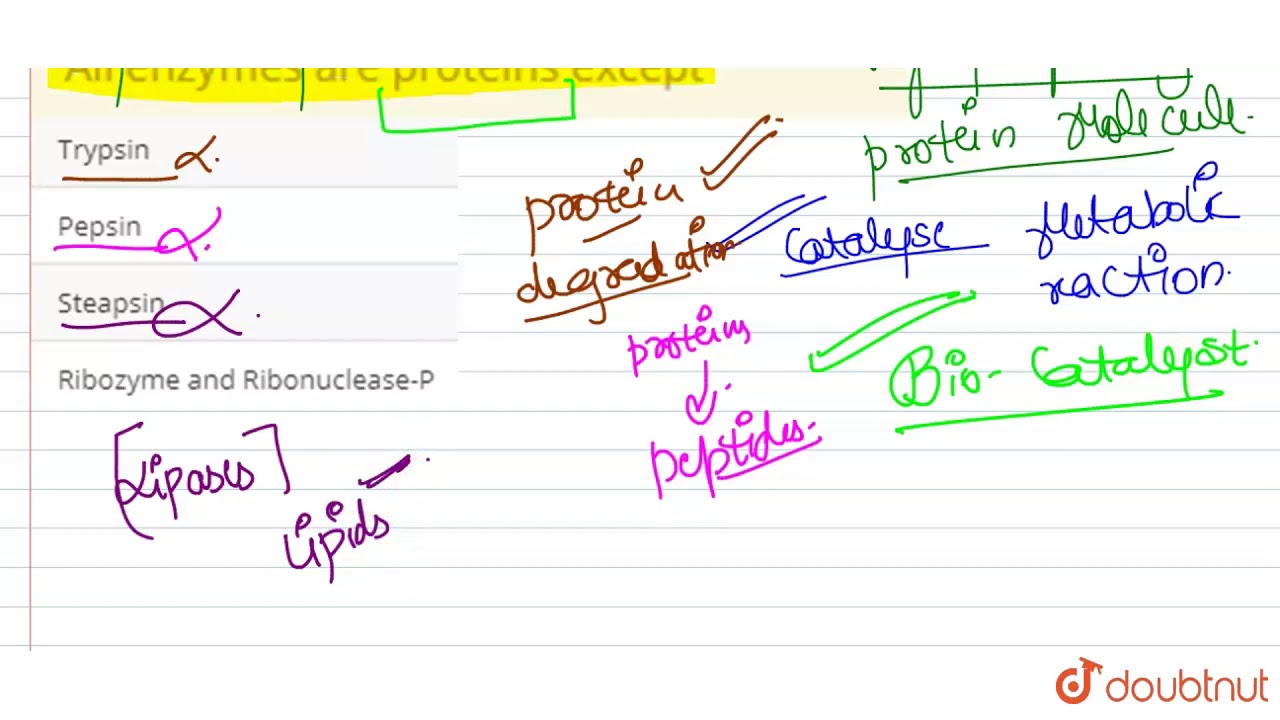 All enzymes are proteins except
Trypsin
Pepsin
Steapsin
Ribozyme and Ribonuclease-P
[Lipases]
Lipids
protein
degradation
proteins
peptides.
protein Molecule.
Catalyse Metabolic
reaction.
Bio-Catalyst.
doubtnut